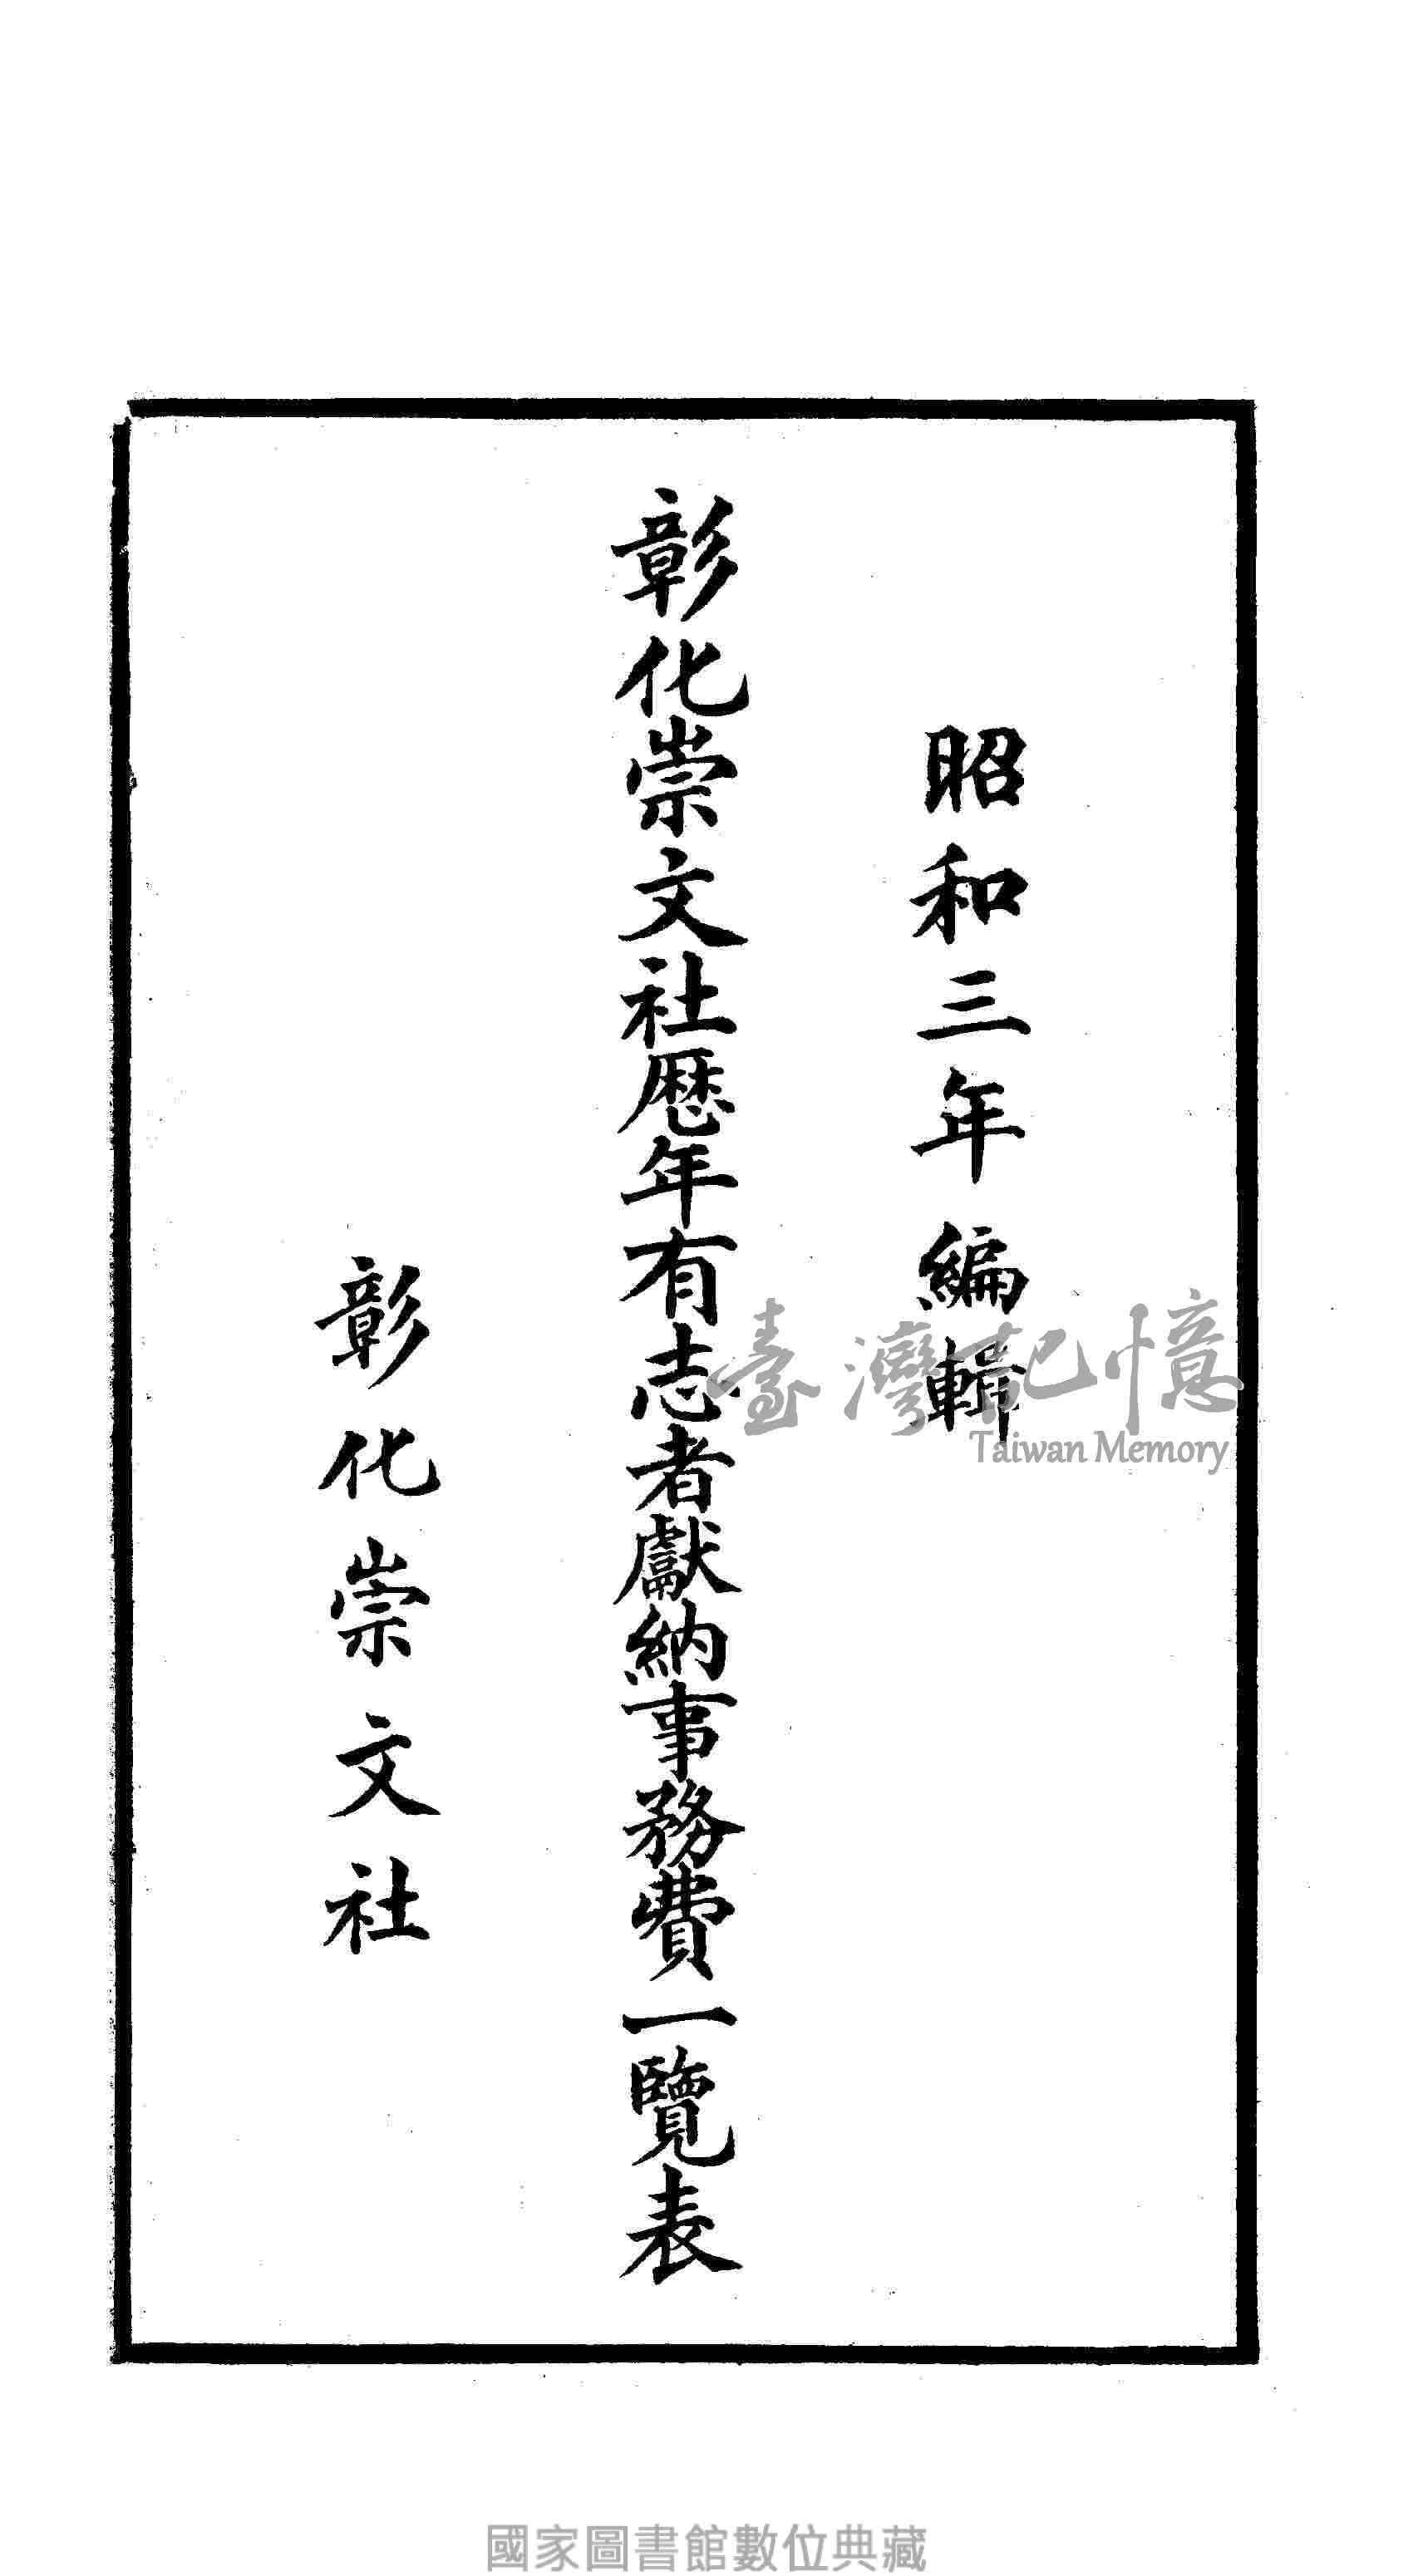 昭和三年編輯
彰化崇文社歷年有志者獻納事務費一覽表
彰化崇文社
臺灣記憶
Taiwan Memory
國家圖書館數位典藏